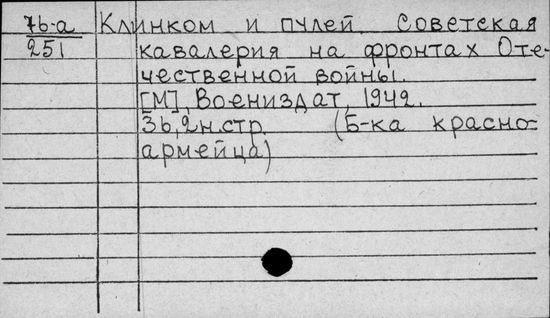 76-а Клинком и пулей. Советская
251 кавалерия на фронтах Оте-
чественной войны.
[М], Воениздат, 1942.
36, 2 н. стр. (Б-ка красно-
армейца)